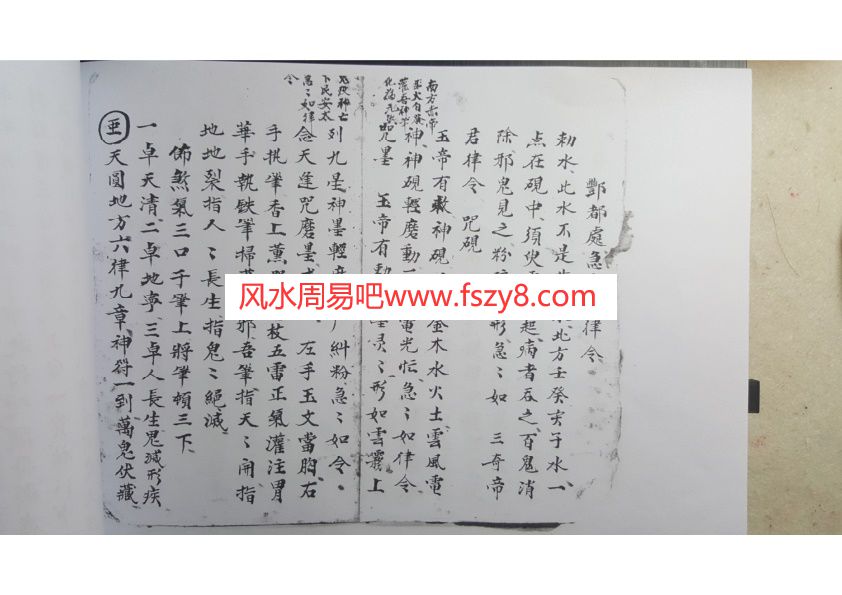 酆都處急
律令
勅水、此水不是
水、北方壬癸亥子水、一
点在硯中、須臾
起、病者吞之、百鬼消
除、邪鬼見之、粉
形、急〻如 三奇帝
君律令 咒硯
玉帝有敕、神硯
金木水火土、雲風電
神、神硯輕磨、動
電光忙、急〻如律令、
咒墨 玉帝有勅
灵〻形如雲霧、上
列九星、神墨輕磨
糾粉、急〻如令。
念天逢咒磨墨
左手玉文當胸、右
手执筆香上薰
杖、五雷正氣、灌注胃
華、手執鉄筆掃
邪、吾筆指天〻開、指
地地裂、指人〻長生、指鬼〻絕滅、
佈煞氣三口于筆上、將筆頓三下、
一卓天清、二卓地寧、三卓人長生、鬼滅形疾
天圓地方、六律九章、神符一到、萬鬼伏藏、
南方赤帝
下民安太
如律
令
风水周易吧www.fszy8.com